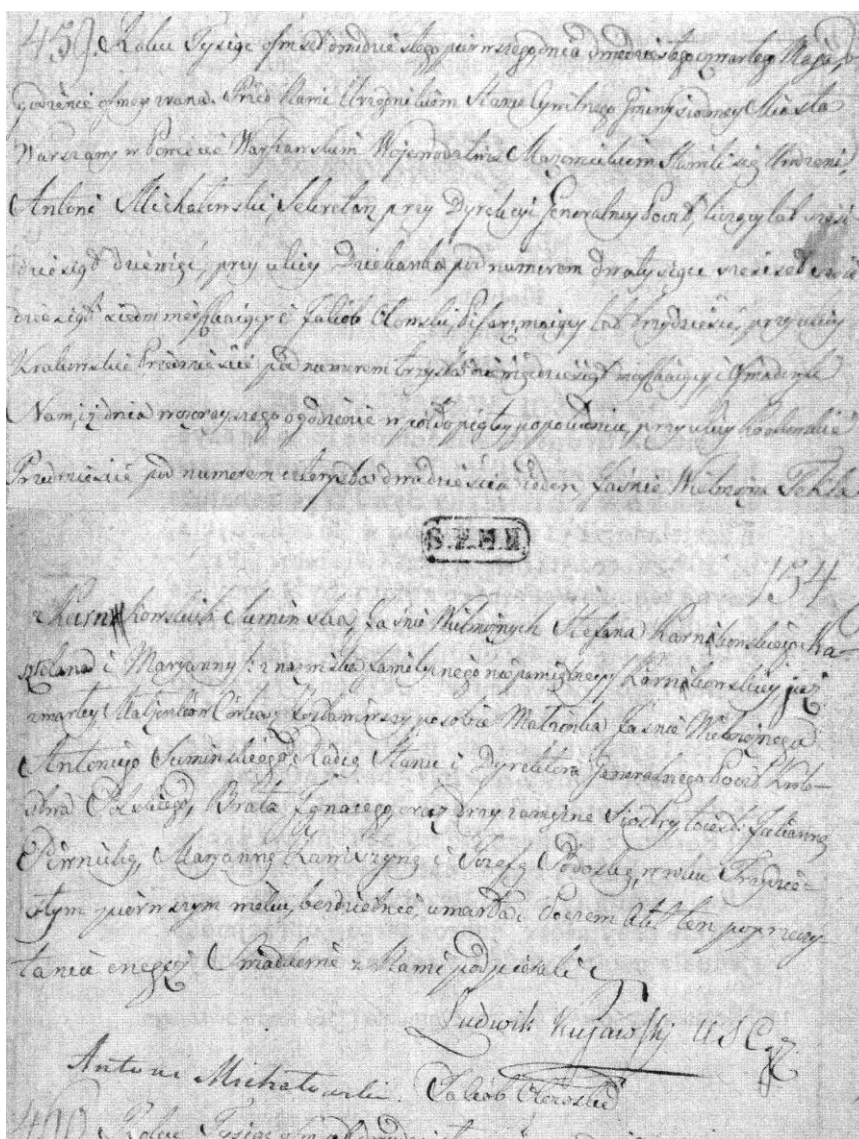 459. Roku Tysiąc ośmset dwudziestego pierwszego dnia dwudziestego czwartego Maja, o
godzinie osmey zrana. Przed Nami Urzędnikiem Stanu Cywilnego Gminy siódmey Miasta
Warszawy w Powiecie Warszawskim Wojewodztwie Mazowieckiem Stawili się Urodzeni,
Antoni Michałowski, Sekretarz przy Dyrekcyi Generalney Poczt, liczący lat sześć
dziesiąt dziewięć, przy ulicy Dziekanka pod numerem dwa tysiące sześćset
dziesiąt siedm mieszkaiący i Jakób Pisarz maiący lat trzydzieści, przy ulicy
Krakowskie Przedmieście pod numerem trzysta dziewięćdziesiąt mieszkaiący i Oświadczyli
Nam, iż dnia wczorayszego o godzinie w pół do piątey popołudniu, przy ulicy Krakowskie
Przedmieście pod numerem czterysta dwadzieścia ieden, Jaśnie Wielmożna Tekla
154
z Karnkowskich Sumińska, Jaśnie Wielmożnych Stefana Karnkowskiego Ka-
sztelana i Maryanny /: z nazwiska familijnego niepamiętney/ Karnkowskiey już
zmarłey Małżonków Córka, Zostawiwszy po sobie Małżonka Jaśnie Wielmożnego
Antoniego Sumińskiego, Radcę Stanu i Dyrektora Generalnego Poczt Króle-
stwa Polskiego, Brata Ignacego, oraz trzy zamężne Siostry, to iest: Juliannę
Maryannę i Józefę Podoską, w roku Trzydzie-
stym pierwszym wieku, bezdzietnie, umarła. Poczem Akt ten po przeczy-
taniu onegoż, Świadkowie z Nami podpisali
Ludwik Kujawski U S C
Antoni Michałowski. Jakób
460 Roku Tysiąc